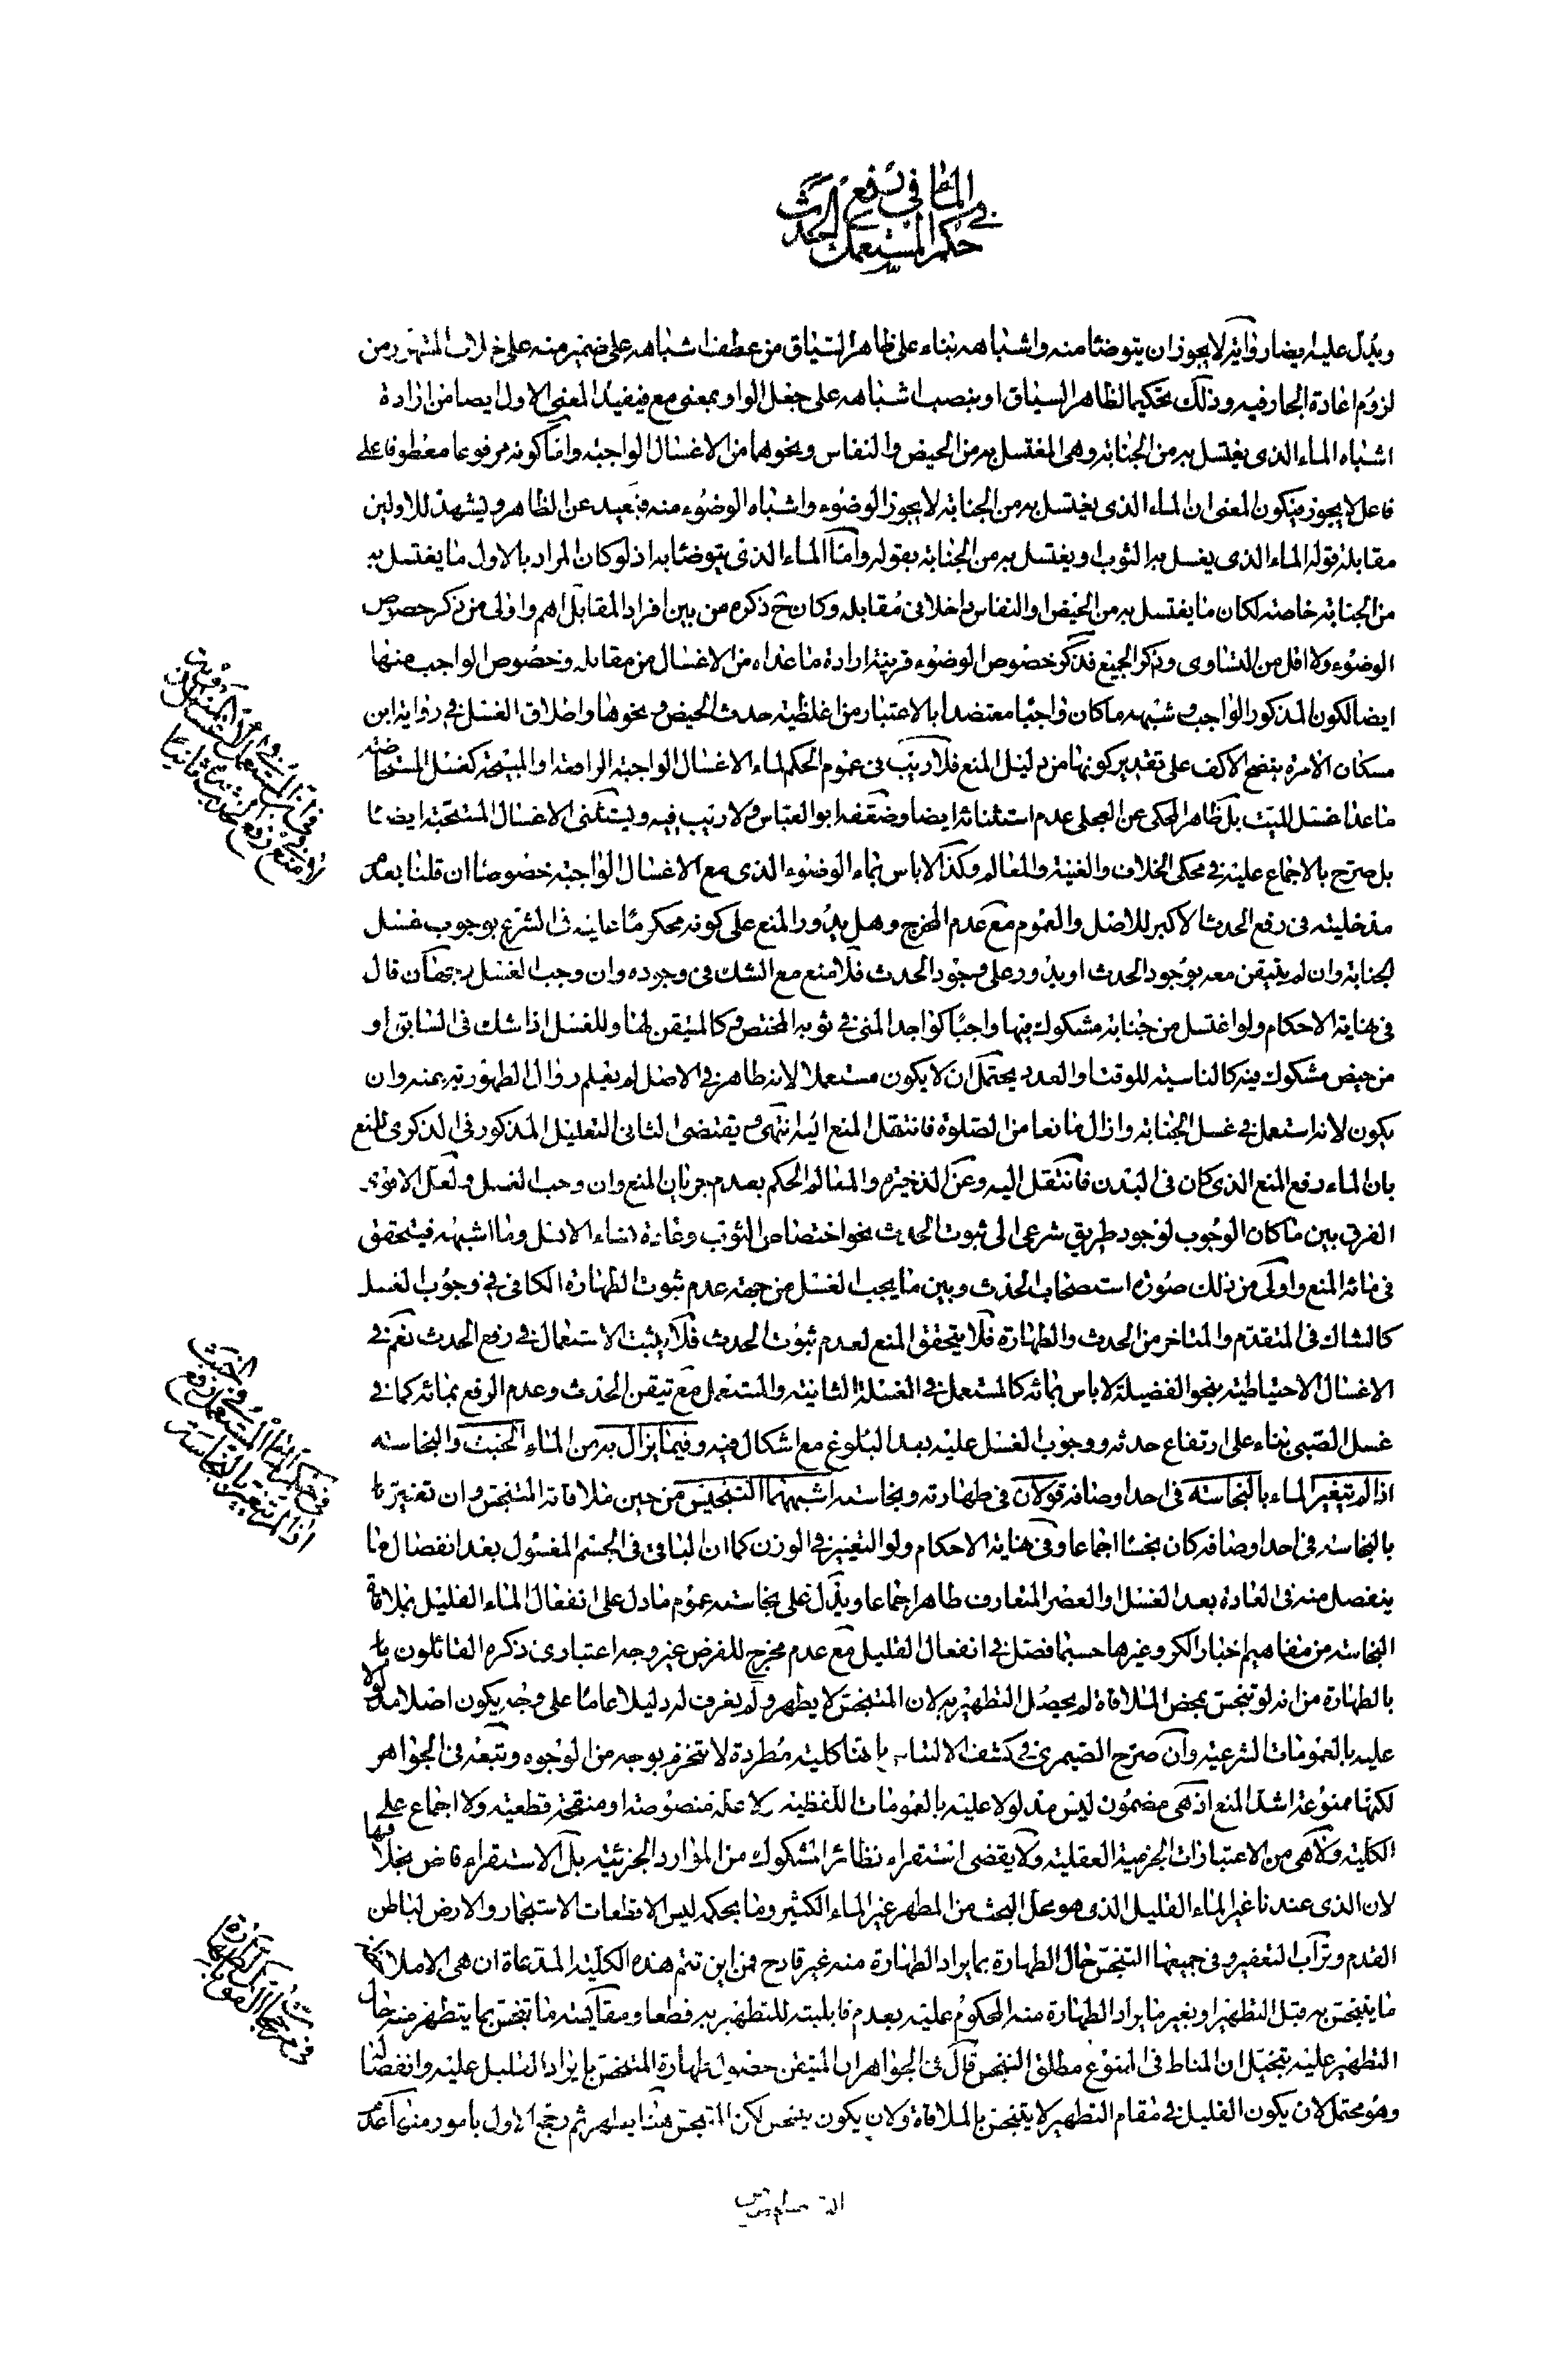 في الماء
حكم المستعمل في رفع الحدث
ويدل عليه ايضا رواية لا يجوز ان يتوضا منه واشباهه بناء على ظاهر السياق من عطف اشباهه على ضمير منه على خلاف المشهور من
لزوم اعادة الجار فيه وذلك تحكيما لظاهر السياق او بنصب اشباهه على جعل الواو بمعنى مع فيفيد المعنى الاول ايضا من ارادة
اشباه الماء الذى يغتسل به من الجنابة وهى المغتسل به من الحيض والنفاس ونحوهما من الاغسال الواجبة واما كونه مرفوعا معطوفا على
فاعل لا يجوز فيكون المعنى ان الماء الذى يغتسل به من الجنابة لا يجوز الوضوء واشباه الوضوء منه فبعيد عن الظاهر ويشهد للاولين
مقابلة قوله الماء الذى يغسل به الثوب او يغتسل به من الجنابة بقوله واما الماء الذى يتوضا به اذ لو كان المراد بالاول ما يغتسل به
من الجنابة خاصة لكان ما يغتسل به من الحيض والنفاس داخلا في مقابله وكان ح ذكره من بين افراد المقابل اهم واولى من ذكر خصوص
الوضوء ولا اقل من التساوى وذكر الجميع فذكر خصوص الوضوء قرينة ارادة ما عداه من الاغسال من مقابله وخصوص الواجب منها
ايضا لكون المذكور الواجب وشبهه ما كان واجبا معتضدا بالاعتبار من اغلظية حدث الحيض ونحوها واطلاق الغسل في رواية ابن
مسكان الامرة بنضح الاكف على تقدير كونها من دليل المنع فلا ريب في عموم الحكم لماء الاغسال الواجبة الرافعة او المبيحة كغسل المستحاضة
ما عدا غسل الميت بل ظاهر المحكى عن المجلى عدم استثنائه ايضا وضعفه ابو العباس ولا ريب فيه ويستثنى الاغسال المستحبة ايضا
بل صرح بالاجماع عليه في محكى الخلاف والغنية والمعالم وكذا لا باس بماء الوضوء الذى مع الاغسال الواجبة خصوصا ان قلنا بعدم
مدخليته في رفع الحدث الاكبر للاصل والعموم مع عدم المخرج وهل يدور المنع على كونه محكوما عليه في الشرع بوجوب غسل
الجنابة وان لم يتيقن معه بوجود الحدث او يدور على وجود الحدث فلا منع مع الشك في وجوده وان وجب الغسل وجهان قال
في نهاية الاحكام ولو اغتسل من جنابة مشكوك فيها واجبا كواجد المنى في ثوبه المختص وكالمتيقن لها وللغسل اذا شك في السابق او
من حيض مشكوك فيه كالناسية للوقت او العدد يحتمل ان لا يكون مستعملا لانه طاهر في الاصل لم يعلم زوال الطهورية منه وان
يكون لانه استعمل في غسل الجنابة وازال مانعا من الصلوة فانتقل المنع اليه انتهى ويقتضى الثانى التعليل المذكور في الذكرى للمنع
بان الماء رفع المنع الذى كان في البدن فانتقل اليه وعن الذخيرة والمعالم الحكم بعدم جريان المنع وان وجب الغسل ولعل الاقوى
الفرق بين ما كان الوجوب لوجود طريق شرعى الى ثبوت الحدث نحو اختصاص الثوب وعادة النساء وما اشبهه فيتحقق
في مائه المنع واولى من ذلك صورة استصحاب الحدث وبين ما يجب الغسل من جهة عدم ثبوت الطهارة الكافى في وجوب الغسل
كالشاك في المتقدم والمتاخر من الحدث والطهارة فلا يتحقق المنع لعدم ثبوت الحدث فلا يثبت الاستعمال في رفع الحدث نعم في
الاغسال الاحتياطية بنحو الفضيلة لا باس بمائه كالمستعمل في الغسلة الثانية والمستعمل مع تيقن الحدث وعدم الرفع بمائه كما في
غسل الصبى بناء على ارتفاع حدثه ووجوب الغسل عليه بعد البلوغ مع اشكال فيه وفيما يزال به من الماء الخبث والنجاسة
اذا لم يتغير الماء بالنجاسة في احد اوصافه قولان في طهارته ونجاسته اشبههما التنجيس من حين ملاقاته المتنجس وان تغير ما
بالنجاسة في احد اوصافه كان نجسا اجماعا وفي نهاية الاحكام ولو التغير في الوزن كما ان الباقى في الجسم المغسول بعد انفصال ما
ينفصل منه في العادة بعد الغسل او العصر المتعارف طاهر اجماعا ويدل على نجاسته عموم ما دل على انفعال الماء القليل بملاقاة
النجاسة من مفاهيم اخبار الكر وغيرها حسبما فصل في انفعال القليل مع عدم مخرج للفرض غير وجه اعتبارى ذكره القائلون
بالطهارة من انه لو تنجس بمحض الملاقاة لم يحصل التطهير به لان المتنجس لا يطهر ولم نعرف له دليلا عاما على وجه يكون اصلا مدلولا
عليه بالعمومات الشرعية وان صرح الصيمرى في كشف الالتباس بانها كلية مطردة لا تنخرم بوجه من الوجوه وتبعه في الجواهر
لكنها ممنوعة اشد المنع اذ هى مضمون ليس مدلولا عليه بالعمومات اللفظية ولا علة منصوصة او منقحة قطعية ولا اجماع على
الكلية ولا هى من الاعتبارات الجزمية العقلية ولا يقضى استقراء نظائر المشكوك من الموارد الجزئية بل الاستقراء قاض بخلافها
لان الذى عندنا غير الماء القليل الذى هو محل البحث من المطهر غير الماء الكثير وما بحكمه ليس الا قطعات الاستجمار والارض لباطن
القدم وتراب التعفير وفي جميعها التنجس حال الطهارة بما يراد الطهارة منه غير قادح فمن اين تتم هذه الكلية المدعاة ان هى الا
ما يتنجس به قبل التطهير او بغير ما يراد الطهارة منه المحكوم عليه بعدم قابليته للتطهير به قطعا ومقايسة ما تنجس بما يتطهر منه حال
التطهير عليه بتخيل ان المناط في الممنوع مطلق التنجس قال في الجواهر ان المتيقن حصول طهارة المتنجس بايراد القليل عليه وانفصاله
وهو محتمل لان يكون القليل في مقام التطهير لا يتنجس بالملاقاة ولان يكون يتنجس لكن المتنجس هنا يطهر ثم رجح الاول بامور منها عدم
في حكم الماء المستعمل في رفع الخبث اذا لم تتغير بالنجاسة